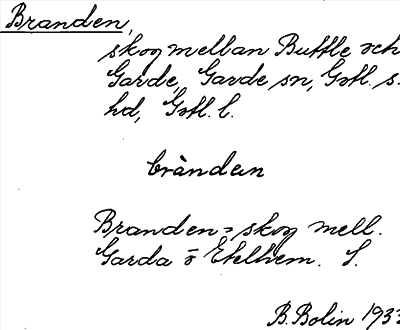 Branden,
skog mellan Buttle och
Garde, Garde sn, Gotl. s.
hd, Gotl. l.
bràndan
Branden = skog mell.
Garda o Etelhem. S.
B. Bolin 1933